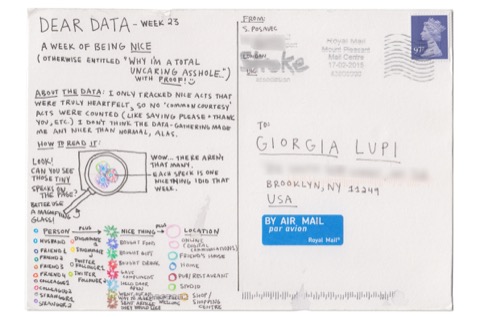 DEAR DATA - WEEK 23
A WEEK OF BEING NICE
(OTHERWISE ENTITLED "WHY I'M A TOTAL
UNCARING ASSHOLE.")
WITH PROOF!
ABOUT THE DATA: I ONLY TRACKED NICE ACTS THAT
WERE TRULY HEARTFELT, SO NO 'COMMON COURTESY'
ACTS WERE COUNTED (LIKE SAYING PLEASE + THANK
YOU, ETC.) I DON'T THINK THE DATA-GATHERING MADE
ME ANY NICER THAN NORMAL, ALAS.
HOW TO READ IT:
LOOK!
CAN YOU SEE
THOSE TINY
SPECKS ON
THE PAGE?
BETTER USE
A MAGNIFYING
GLASS!
WOW... THERE AREN'T
THAT MANY.
EACH SPECK IS ONE
NICE THING I DID THAT
WEEK.
PERSON PLUS
HUSBAND
FRIEND 1
FRIEND 2
FRIEND 3
FRIEND 4
COLLEAGUE 1
COLLEAGUE 2
STRANGERS
TWITTER
FOLLOWERS
NICE THING PLUS
BOUGHT FOOD
BOUGHT GIFT
BOUGHT DRINK
GAVE
COMPLIMENT
HELD DOOR
OPEN
SENT ARTICLE
THEY WOULD LIKE
LOCATION
ONLINE
(DIGITAL
COMMUNICATIONS)
FRIEND'S HOUSE
HOME
PUB/RESTAURANT
STUDIO
SHOP/
SHOPPING
CENTRE
FROM:
S. POSAVEC
LONDON
Royal Mail
Mount Pleasant
Mail Centre
17-02-2015
TO:
GIORGIA LUPI
BROOKLYN, NY 11249
USA
BY AIR MAIL
par avion
Royal Mail